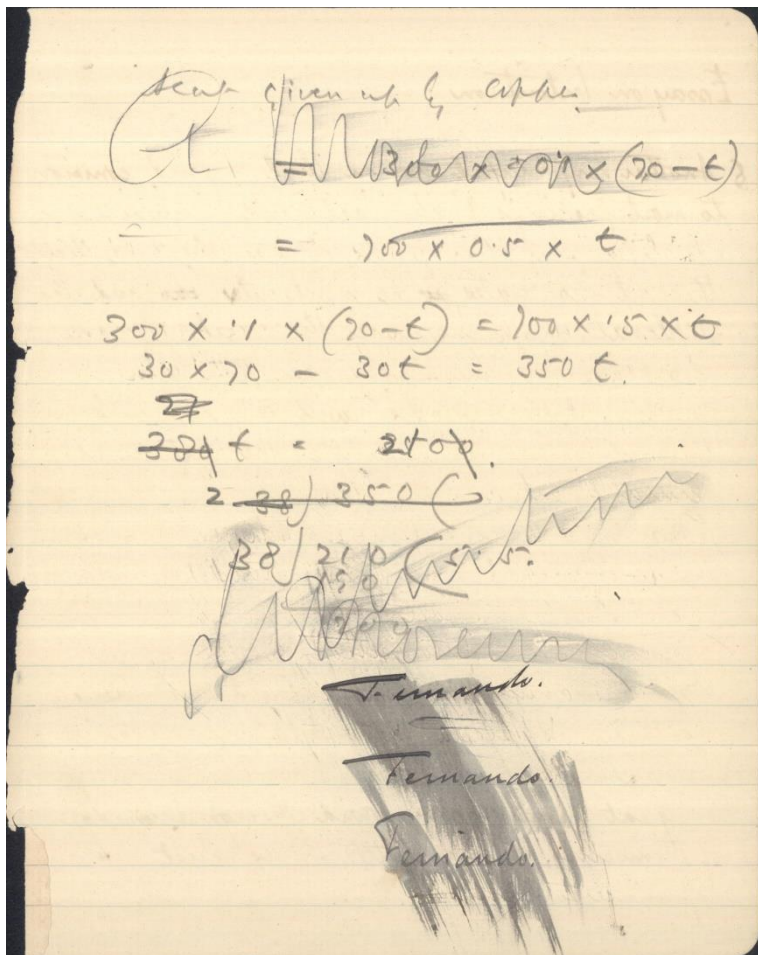 Heat given up by copper
= 300 x 0.1 x (70 - t)
= 700 x 0.5 x t
300 x .1 x (70-t) = 700 x .5 x t
30 x 70 - 30t = 350 t.
27
380 t = 2100.
2 38) 350 (
38) 210 (5.5.
190
200
Fernando.
Fernando.
Fernando.